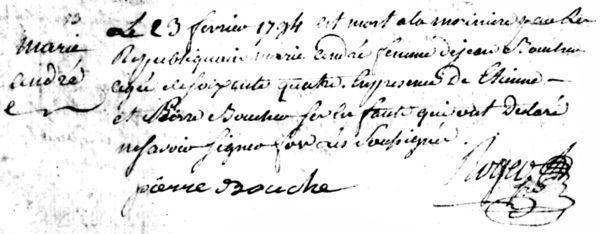 marie
andré
Le 23 fevrier 1794 est mort a la moriniere par Les
Republiquain marie andré femme de jean Boucher
agée de soixante quatre. En presence de Etienne
et Pierre Boucher qui ont Declaré
ne savoir signer fors Les Soussignés.
pierre Bouche
Roger